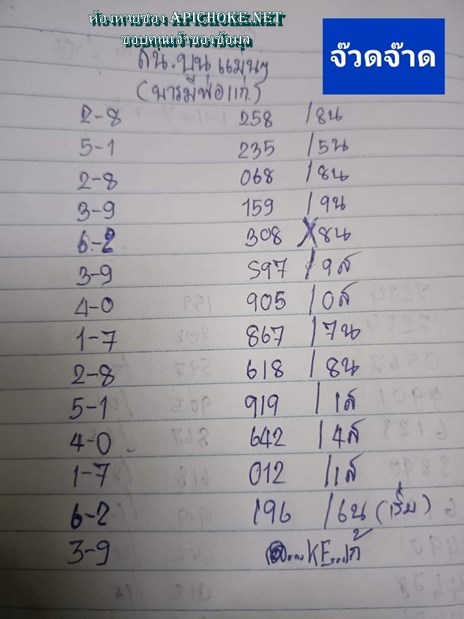 ห้องทายของ APICHOKE.NET
ขอบคุณเจ้าของข้อมูล
จ๊วดจ๊าด
ฅน.บน แม่นๆ
(บารมีพ่อแก่)
2-8 258 /8น
5-1 235 /5น
2-8 068 /8น
3-9 159 /9น
6-2 308 X8น
3-9 597 /9ส
4-0 905 /0ส
1-7 867 /7น
2-8 618 /8น
5-1 919 /1ส
4-0 642 /4ส
1-7 012 /1ส
6-2 196 /6น (เริ่ม)
3-9